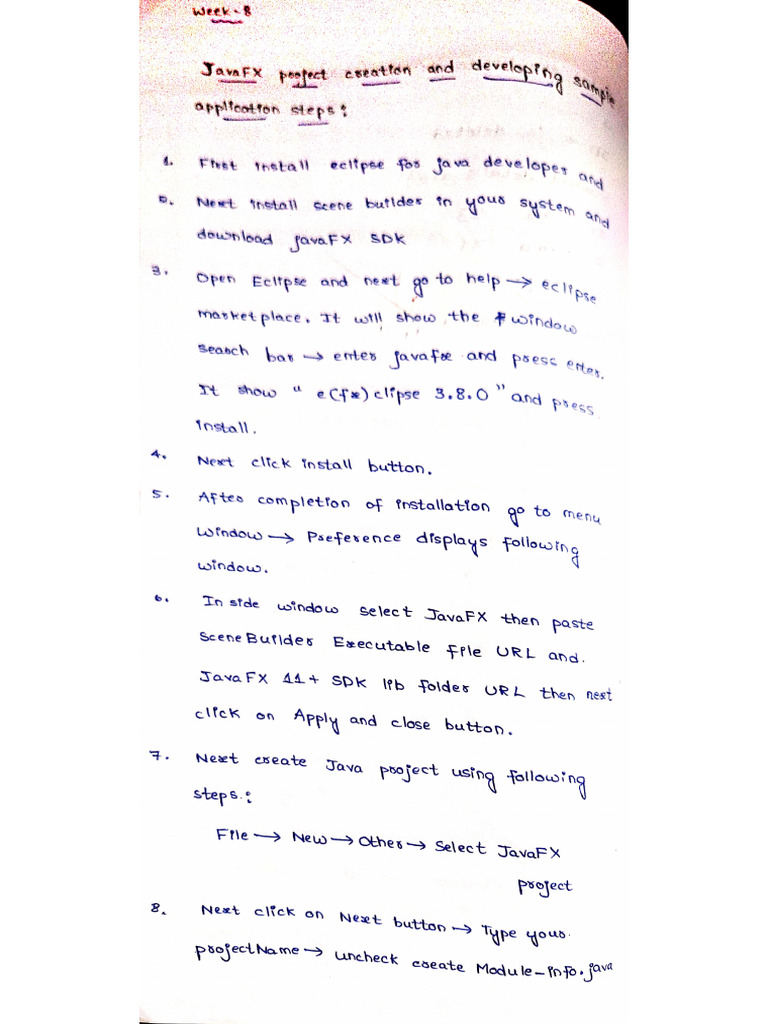 Week-8
JavaFX project creation and developing sample
application steps:
1. First install eclipse for java developer and
2. Next install scene builder in your system and
download javaFX SDK
3. Open Eclipse and next go to help → eclipse
marketplace. It will show the window
search bar → enter javafx and press enter.
It show " e(fx)clipse 3.8.0 " and press
install.
4. Next click install button.
5. After completion of installation go to menu
Window → Preference displays following
window.
6. In side window select JavaFX then paste
SceneBuilder Executable file URL and
JavaFX 11+ SDK lib folder URL then next
click on Apply and close button.
7. Next create Java project using following
steps:
File → New → Other → Select JavaFX
project
8. Next click on Next button → Type your
projectName → uncheck create Module-info.java